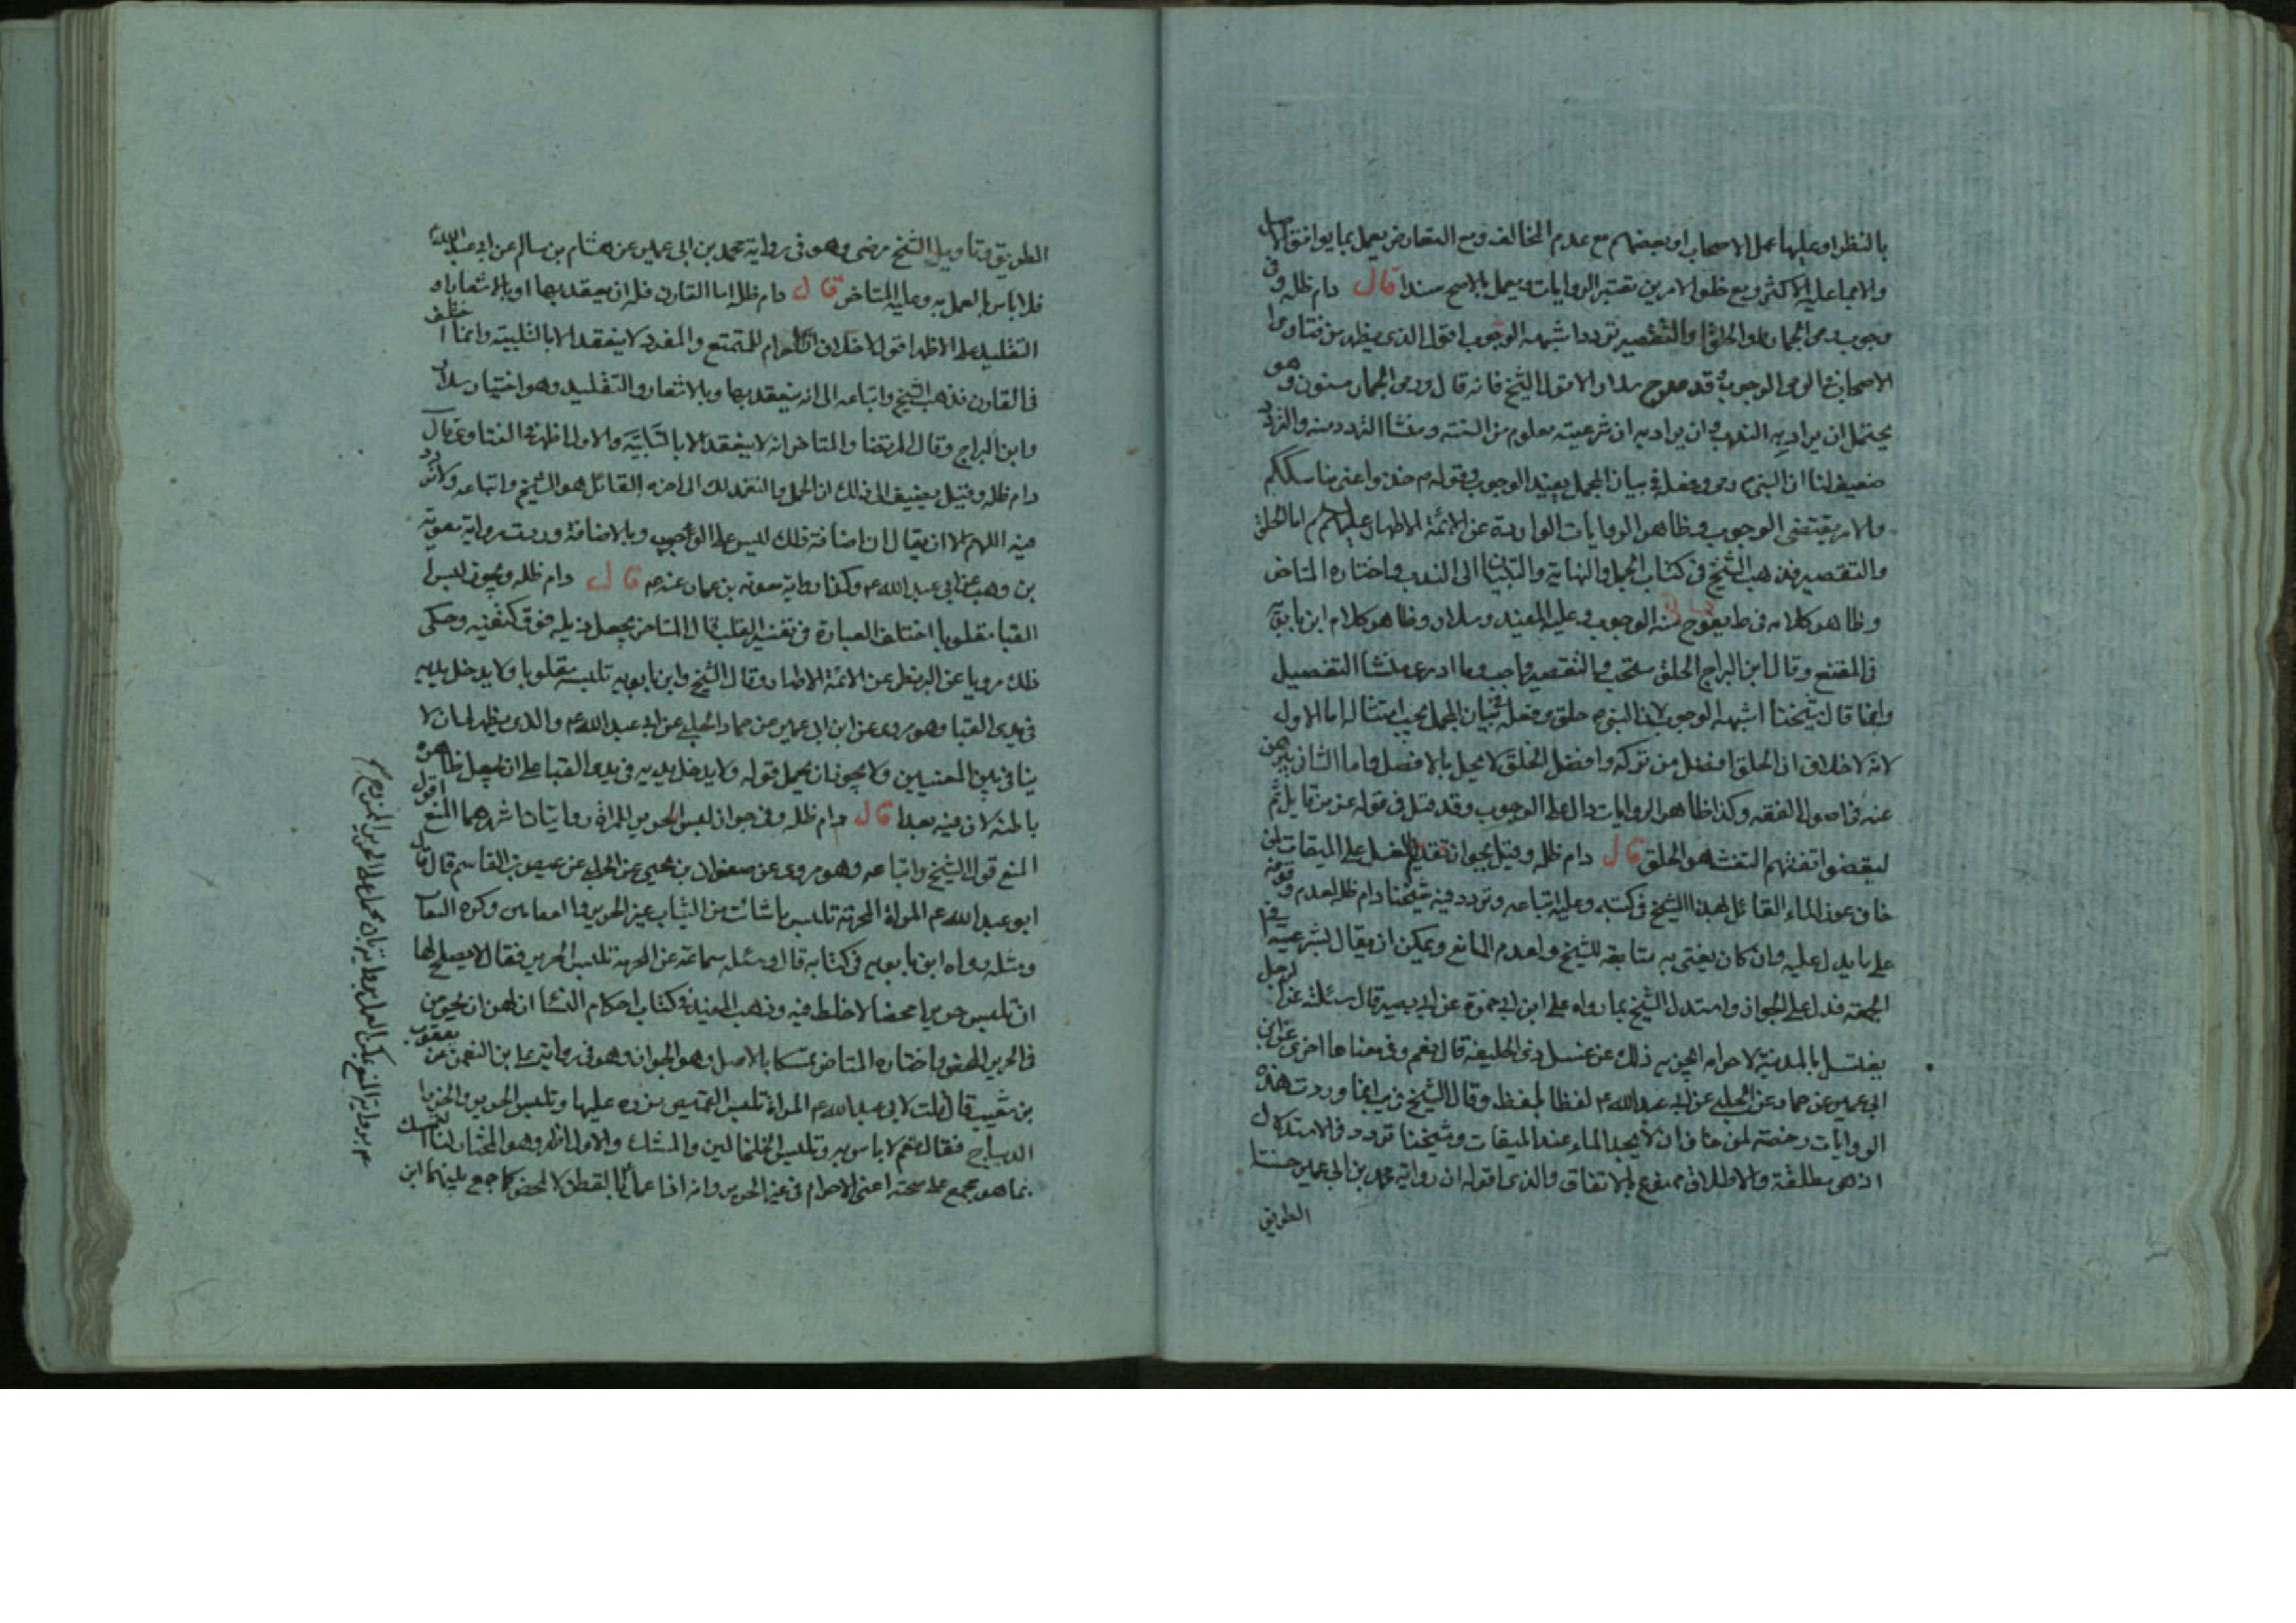 بالنظر او عليها عمل الاصحاب او بعضهم مع عدم المخالف ومع التعارض يعمل بما يوافق الاصل
والاجماعلية الاكثر ومع خلو الامرين تعتبر الروايات ويعمل بالاصح سندا قال دام ظله وفى
وجوب رمى الجمار والحلق او التقصير تردد اشبهه الوجوب اقول الذى يظهر من فتاوى
الاصحاب فى الرمى الوجوب وقد صرح سلار الا قول الشيخ فانه قال ورمى الجمار مسنون وهو
يحتمل ان يراد به الندب وان يراد به ان شرعيته معلوم من السنة ومنشأ التردد منه والتردد
ضعيف لنا ان النبى رمى وفعله فى بيان المجمل يفيد الوجوب وقوله م خذوا عنى مناسككم
والامر يقتضى الوجوب وظاهر الروايات الواردة عن الائمة الاطهار عليهم اما الحلق
والتقصير فذهب الشيخ فى كتاب الجمل والنهاية والتبيان الى الندب واختاره المتاخر
وظاهر كلامه فى ط يلوح منه الوجوب وعليه المفيد وسلار وظاهر كلام ابن بابويه
فى المقنع وقال ابن البراج الحلق مستحب والتقصير واجب وما ادرى منشا التفصيل
وانما قال شيخنا اشبهه الوجوب لان النبى م حلق وفعله فى بيان المجمل يجب امتثاله اما الاول
لانه لا خلاف ان الحلق افضل من تركه وافضل الخلق لا يخل بالافضل واما الثانى يبرهن
عنه فى اصول الفقه وكذا ظاهر الروايات دال على الوجوب وقد قيل فى قوله عز من قايل ثم
ليقضوا تفثهم التفث هو الحلق قال دام ظله وقيل يجوز تقديم الغسل على الميقات لمن
خاف عوز الماء القائل بهذا الشيخ فى كتبه وعليه اتباعه وتردد فيه شيخنا دام ظله لعدم وقوفه
على ما يدل عليه وان كان يفتى به متابعة للشيخ ولعدم المانع ويمكن ان يقال لشرعيته
الجمعة فدل على الجواز واستدل الشيخ بما رواه على ابن ابى حمزة عن ابى بصير قال سئلته عن الرجل
يغتسل بالمدينة لاحرامه ايجزيه ذلك عن غسل ذى الحليفة قال نعم وفى معناها اخرى عن ابن
ابى عمير عن حماد عن الحلبى عن ابى عبدالله ع لفظا بلفظ وقال الشيخ فى يب انما وردت هذه
الروايات رخصة لمن خاف ان لا يجد الماء عند الميقات وشيخنا تردد فى الاستدلال
اذ هى مطلقة والاطلاق ممنوع بالاتفاق والذى اقوله ان رواية محمد بن ابى عمير حسنتا
الطريق
الطريق وتأويل الشيخ مرضى وهو فى رواية محمد بن ابى عمير عن هشام بن سالم عن ابى عبد الله ع
فلا باس بالعمل به وعليه المتاخر قال دام ظله اما القارن فله ان يعقد بها او بالاشعار او
التقليد على الاظهر اقول لا خلاف ان احرام المتمتع والمفرد لا ينعقد الا بالتلبية وانما اختلف
فى القارن فذهب الشيخ واتباعه الى انه ينعقد بها وبالاشعار والتقليد وهو اختيار سلار
وابن البراج وقال المرتضى والمتاخر انه لا ينعقد الا بالتلبية والاول اظهر فى الفتاوى قال
دام ظله وقيل يضيف الى ذلك ان الحمد والنعمة لك الى اخره القائل هو الشيخ واتباعه ولا تردد
فيه اللهم الا ان يقال ان اضافة ذلك ليس على الوجوب وبالاضافة وردت رواية معوية
بن وهب عن ابى عبد الله ع وكذا رواية معوية بن عمار عنه ع قال دام ظله ويجوز لبس
القبا مقلوبا اختلف العبارة فى تفسير القلب قال المتاخر يجعل ذيله فوق كتفيه وحكى
ذلك مرويا عن البزنطى عن الائمة الاطهار وقال الشيخ وابن بابويه تلبسه مقلوبا ولا يدخل يديه
فى يدى القبا وهو مروى عن ابن ابى عمير عن حماد الحلبى عن ابى عبد الله ع والذى يظهر لى ان لا
ينافى بين المعنيين ولا يجوز ان يحمل قوله ولا يدخل يديه فى يدى القبا على ان يجعل ظاهره
باطنه لان فيه بعدا قال دام ظله وفى جواز لبس الحرير للمراة روايتان اشهرهما المنع اقول
المنع قول الشيخ واتباعه وهو مروى عن صفوان بن يحيى عن الحلبى عن عيص بن القاسم قال قال
ابو عبد الله ع المراة المحرمة تلبس ما شائت من الثياب غير الحرير والقفازين وكره النقاب
ومثله رواه ابن بابويه فى كتابه قال وسئله سماعة عن المحرمة تلبس الحرير فقال لا يصلح لها
ان تلبس حريرا محضا لا خلط فيه وذهب المفيد فى كتاب احكام النساء ان لهن ان يحرمن
فى الحرير المحض واختاره المتاخر تمسكا بالاصل وهو الجواز وهو فى رواية على بن النعمن عن يعقوب
بن شعيب قال قلت لابى عبد الله ع المراة تلبس القميص تزره عليها وتلبس الحرير والخز و
الديباج فقال نعم لا باس به وتلبس الخلخالين والمسك والاول اظهر وهو المختار لنا التمسك
بما هو مجمع على صحته اعنى الاحرام فى غير الحرير وانه